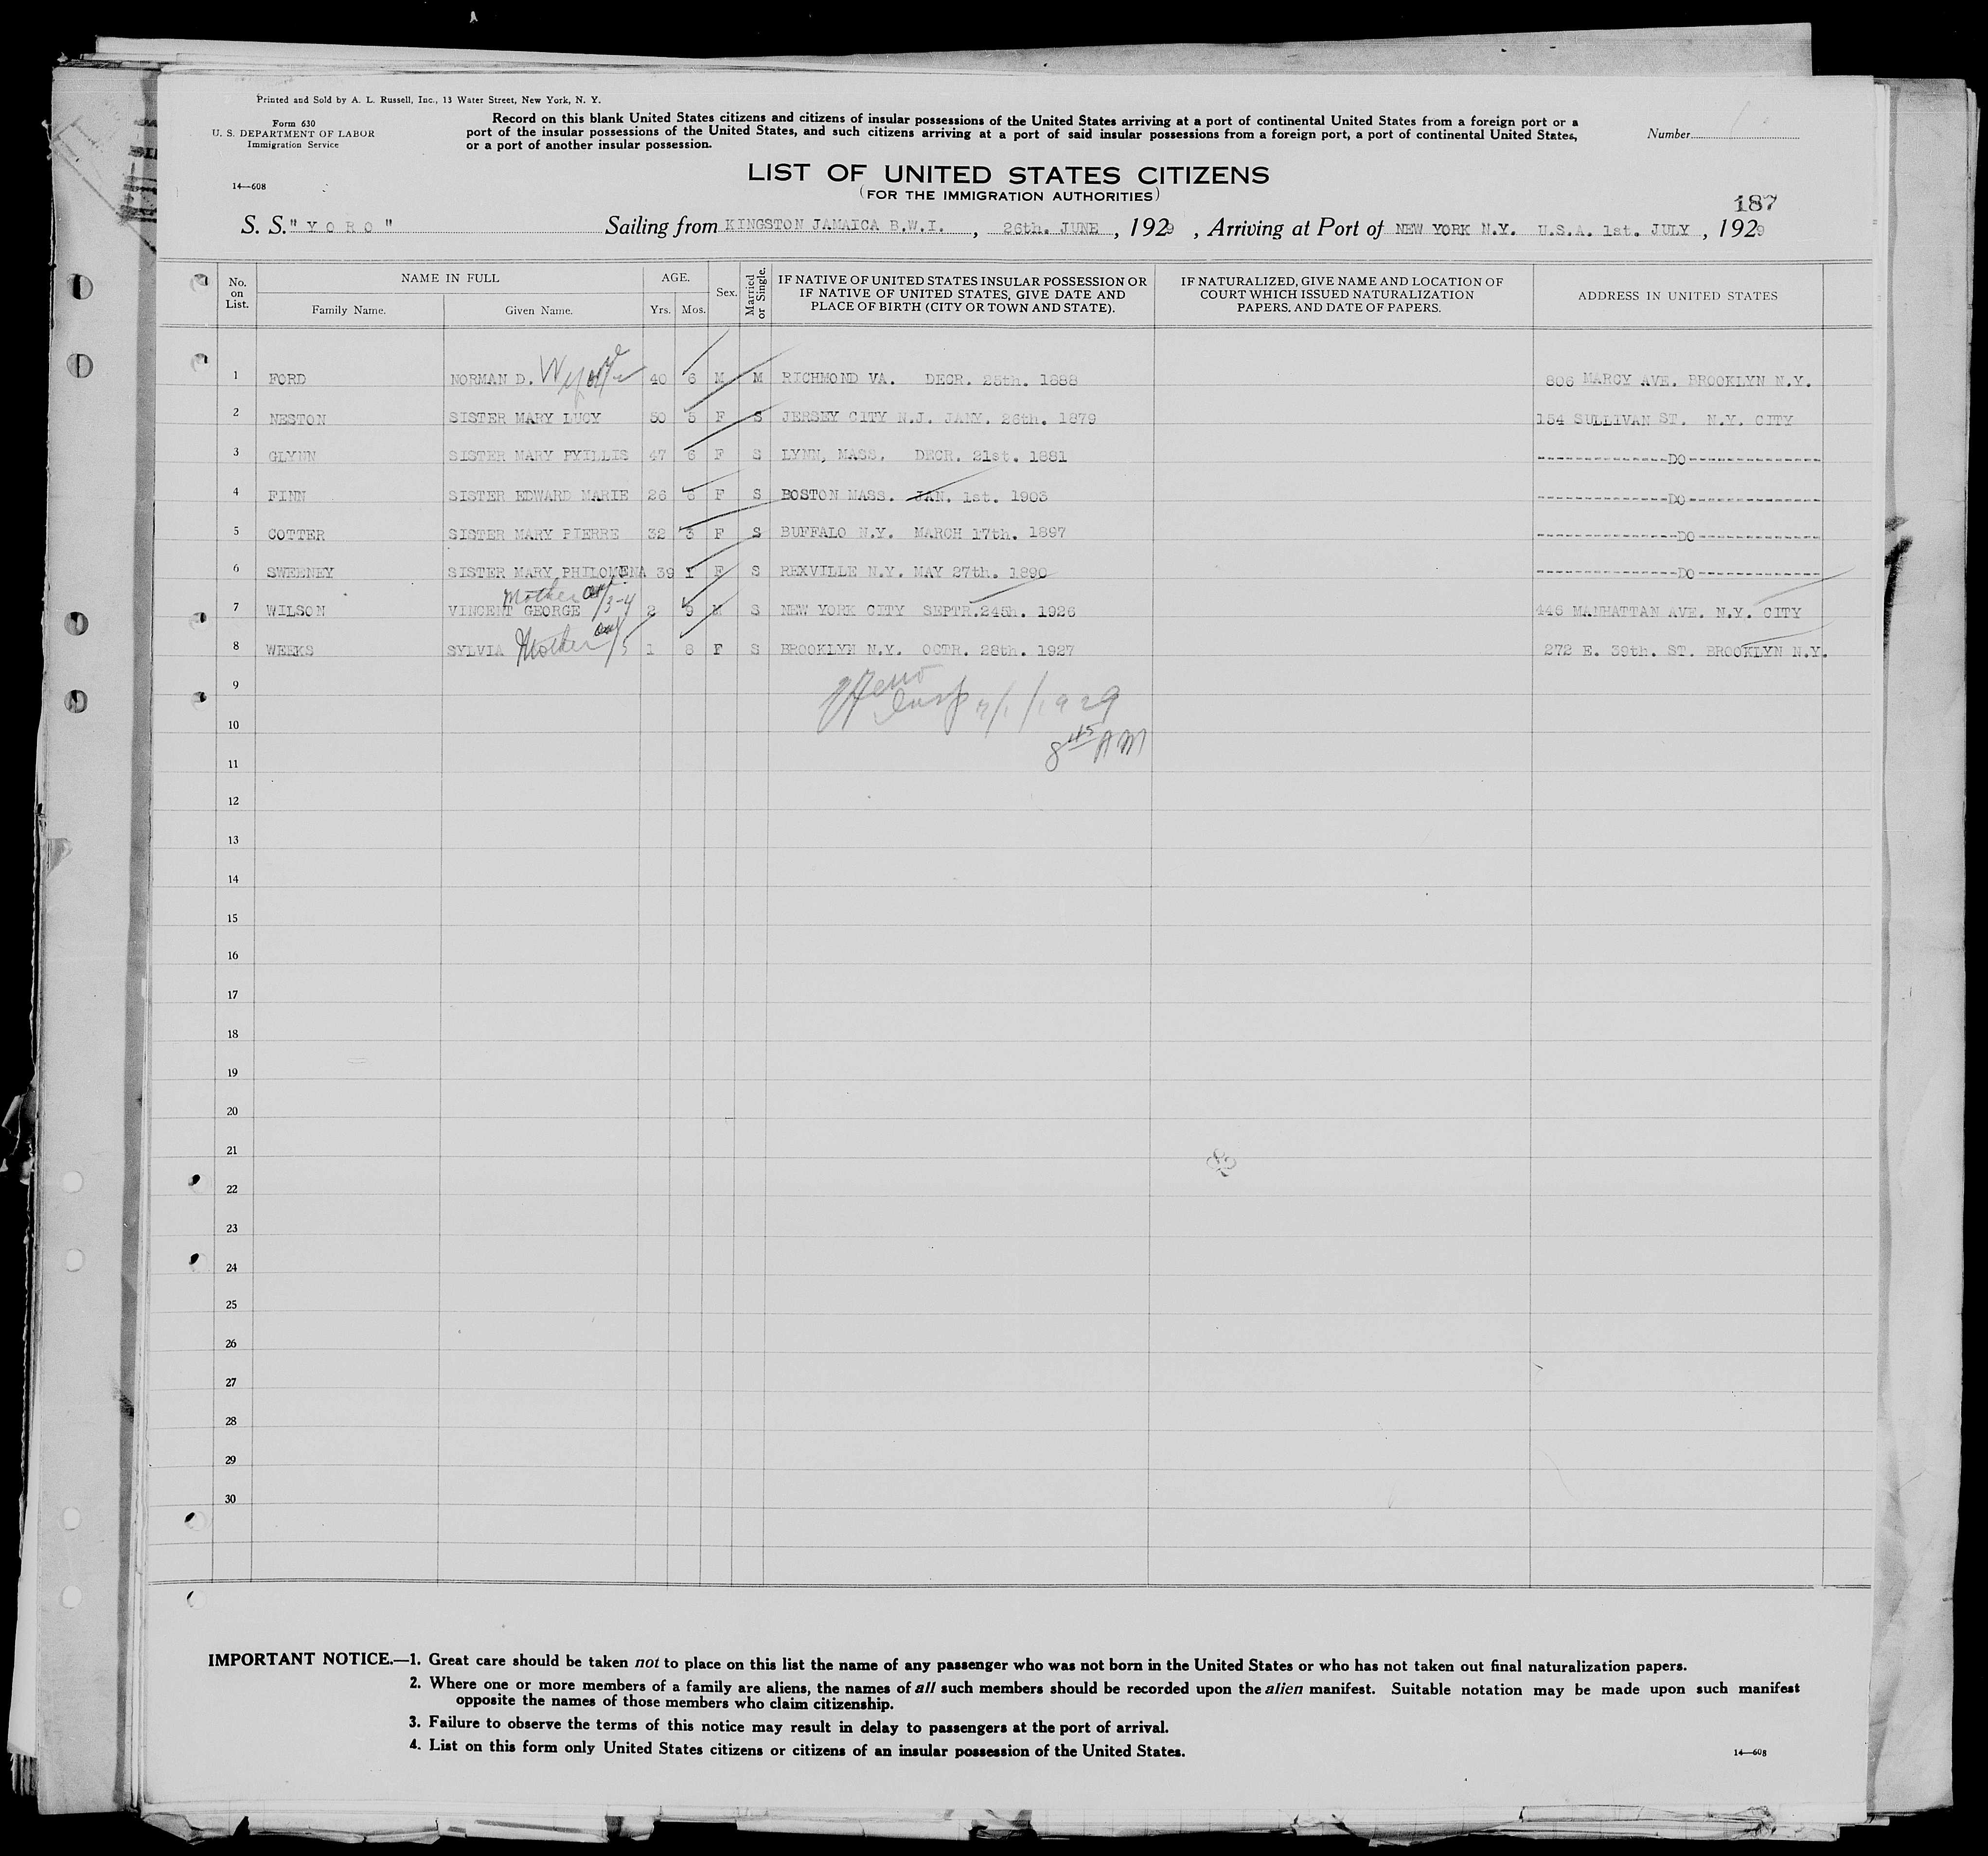 Printed and Sold by A. L. Russell, Inc., 13 Water Street, New York, N. Y.
Form 630
U. S. DEPARTMENT OF LABOR
Immigration Service
14—608
Record on this blank United States citizens and citizens of insular possessions of the United States arriving at a port of continental United States from a foreign port or a
port of the insular possessions of the United States, and such citizens arriving at a port of said insular possessions from a foreign port, a port of continental United States,
or a port of another insular possession.
Number
LIST OF UNITED STATES CITIZENS
(FOR THE IMMIGRATION AUTHORITIES)
187
S. S. "YORO" Sailing from KINGSTON JAMAICA B.W.I. , 26th. JUNE , 1929 , Arriving at Port of NEW YORK N.Y. U.S.A. 1st. JULY , 1929
No. on List. NAME IN FULL Family Name. Given Name. AGE. Yrs. Mos. Sex. Married or Single. IF NATIVE OF UNITED STATES INSULAR POSSESSION OR IF NATIVE OF UNITED STATES, GIVE DATE AND PLACE OF BIRTH (CITY OR TOWN AND STATE). IF NATURALIZED, GIVE NAME AND LOCATION OF COURT WHICH ISSUED NATURALIZATION PAPERS, AND DATE OF PAPERS. ADDRESS IN UNITED STATES
1 FORD NORMAN D. 40 6 M M RICHMOND VA. DECR. 25th. 1888 806 MARCY AVE. BROOKLYN N.Y.
2 NESTON SISTER MARY LUCY 50 5 F S JERSEY CITY N.J. JANY. 26th. 1879 154 SULLIVAN ST. N.Y. CITY
3 GLYNN SISTER MARY PYILLIS 47 6 F S LYNN, MASS. DECR. 21st. 1881 --------------DO--------------
4 FINN SISTER EDWARD MARIE 26 6 F S BOSTON MASS. JAN. 1st. 1903 --------------DO--------------
5 COTTER SISTER MARY PIERRE 32 3 F S BUFFALO N.Y. MARCH 17th. 1897 ---------------DO-------------
6 SWEENEY SISTER MARY PHILOMENA 39 1 F S REXVILLE N.Y. MAY 27th. 1890 ---------------DO-------------
Mother on 1/3-4
7 WILSON VINCENT GEORGE 2 9 M S NEW YORK CITY SEPTR.245h. 1926 446 MANHATTAN AVE. N.Y. CITY
8 WEEKS SYLVIA Mother on /5 1 8 F S BROOKLYN N.Y. OCTR. 28th. 1927 272 E. 39th. ST. BROOKLYN N.Y.
9
Insp 7/1/1929
10
8 45 AM
11
12
13
14
15
16
17
18
19
20
21
22
23
24
25
26
27
28
29
30
IMPORTANT NOTICE.—1. Great care should be taken not to place on this list the name of any passenger who was not born in the United States or who has not taken out final naturalization papers.
2. Where one or more members of a family are aliens, the names of all such members should be recorded upon the alien manifest. Suitable notation may be made upon such manifest
opposite the names of those members who claim citizenship.
3. Failure to observe the terms of this notice may result in delay to passengers at the port of arrival.
4. List on this form only United States citizens or citizens of an insular possession of the United States.
14—608